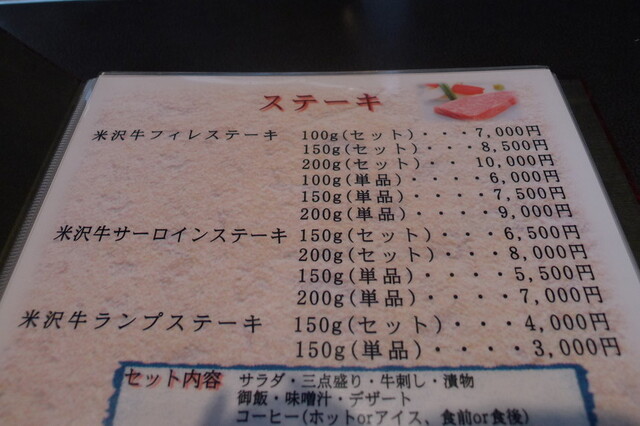 ステーキ
米沢牛フィレステーキ 100g(セット)・・・7,000円
150g(セット)・・・8,500円
200g(セット)・・・10,000円
100g(単品)・・・・6,000円
150g(単品)・・・・7,500円
200g(単品)・・・・9,000円
米沢牛サーロインステーキ 150g(セット)・・・6,500円
200g(セット)・・・8,000円
150g(単品)・・・・5,500円
200g(単品)・・・・7,000円
米沢牛ランプステーキ 150g(セット)・・・4,000円
150g(単品)・・・・3,000円
セット内容 サラダ・三点盛り・牛刺し・漬物
御飯・味噌汁・デザート
コーヒー(ホットorアイス、食前or食後)